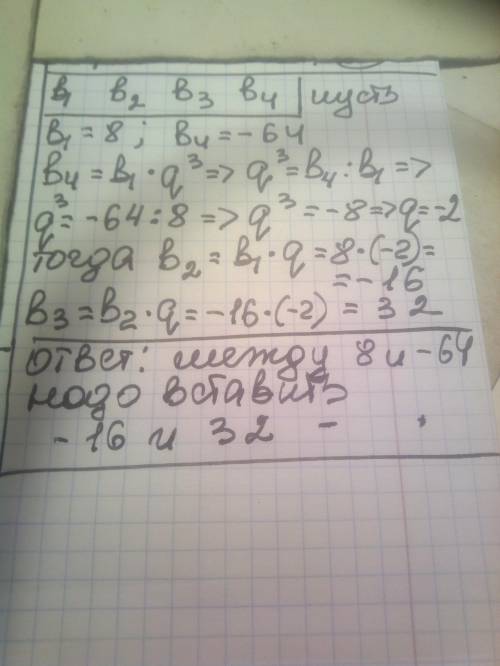 в₁ в₂ в₃ в₄ | пусть
в₁ = 8 ; в₄ = -64
в₄ = в₁ · q³ => q³ = в₄ : в₁ =>
q³ = -64 : 8 => q³ = -8 => q = -2
тогда в₂ = в₁ · q = 8 · (-2) =
= -16
в₃ = в₂ · q = -16 · (-2) = 32
ответ: между 8 и -64
надо вставить
-16 и 32 -